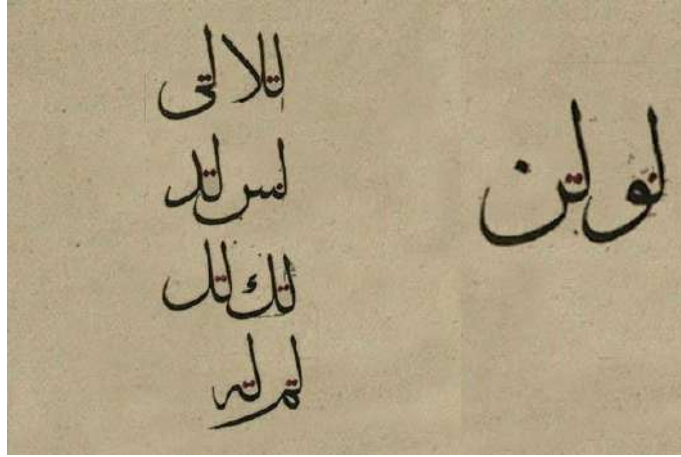 لو لن
للا لى
لس لد
لك لل
لم له